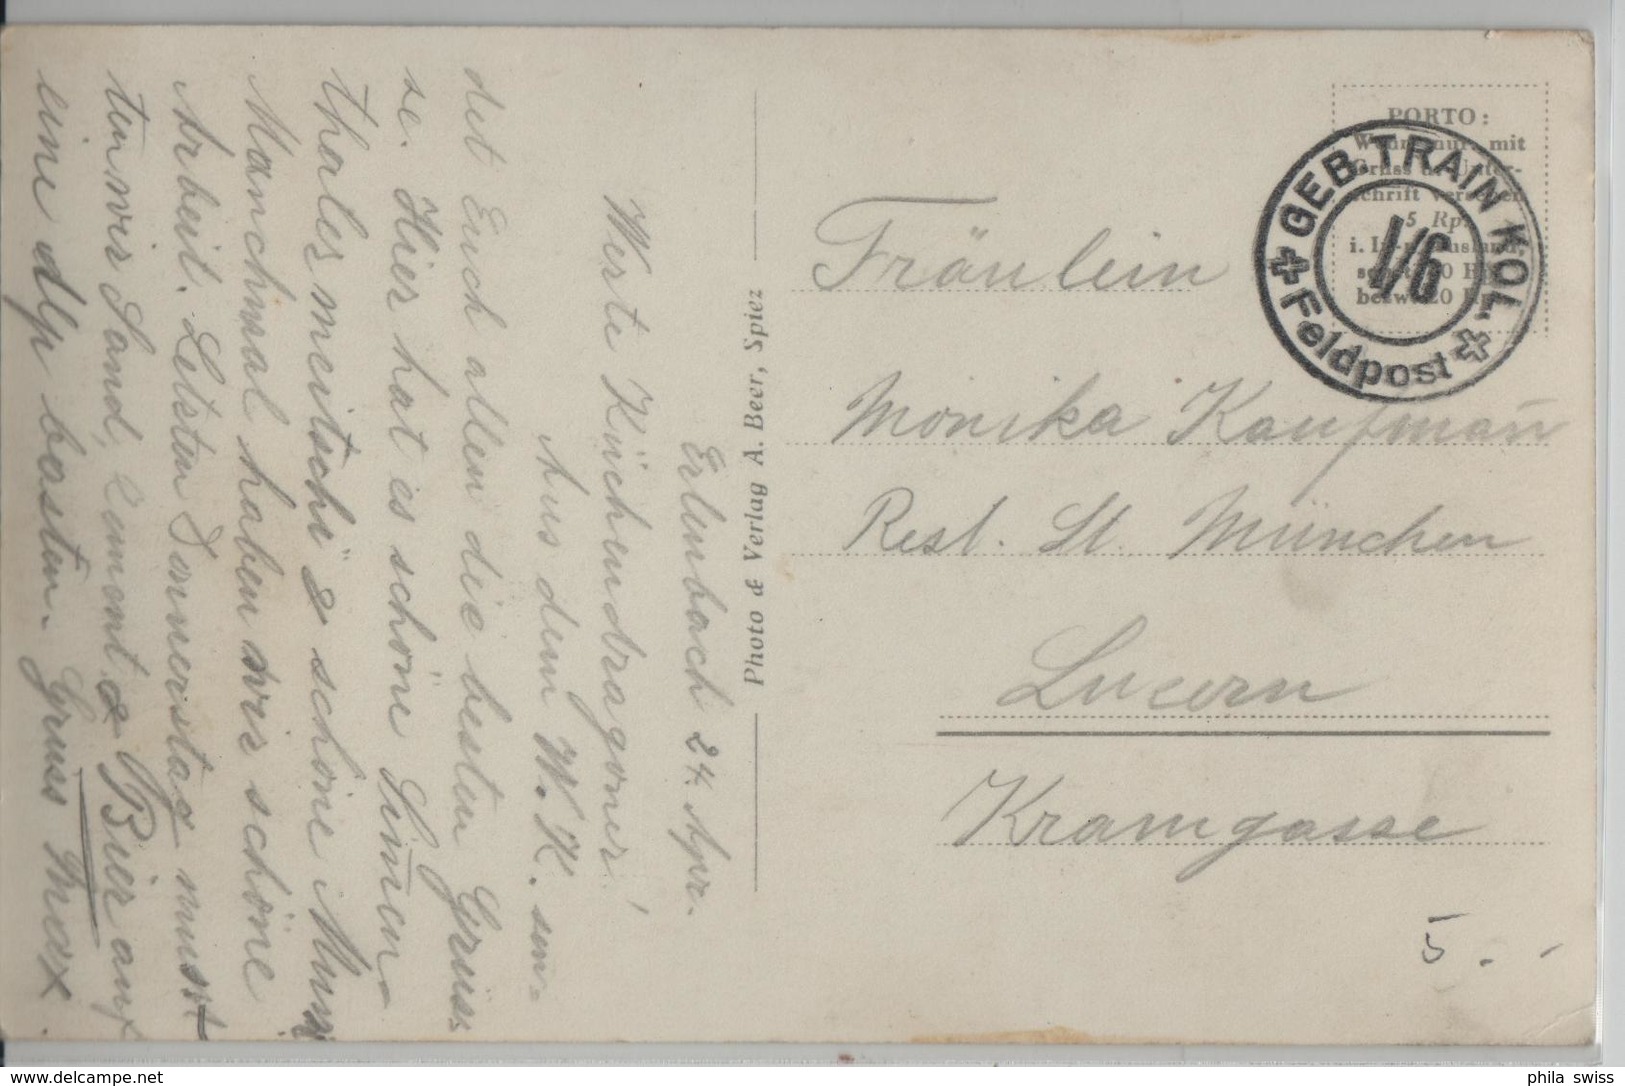 Erlenbach 24. Apr.
Werte Küchendragoner!
Aus dem W. K. sen-
det Euch allen die besten Grüs-
se. Hier hat es schöne Simen-
thalermeitschi & schöne Muni
Manchmal haben wir schöne
Arbeit. Letsten Donnerstag muss-
ten wir Sand, Zement & Bier auf
eine Alp basten. Gruss Max.
Photo & Verlag A. Beer, Spiez
PORTO:
mit
5 Rp.
GEB. TRAIN KOL.
I/6
Feldpost
Fräulein
Monika Kaufmañ
Rest. St. München
Lucern
Kramgasse
5.-
phila_swiss